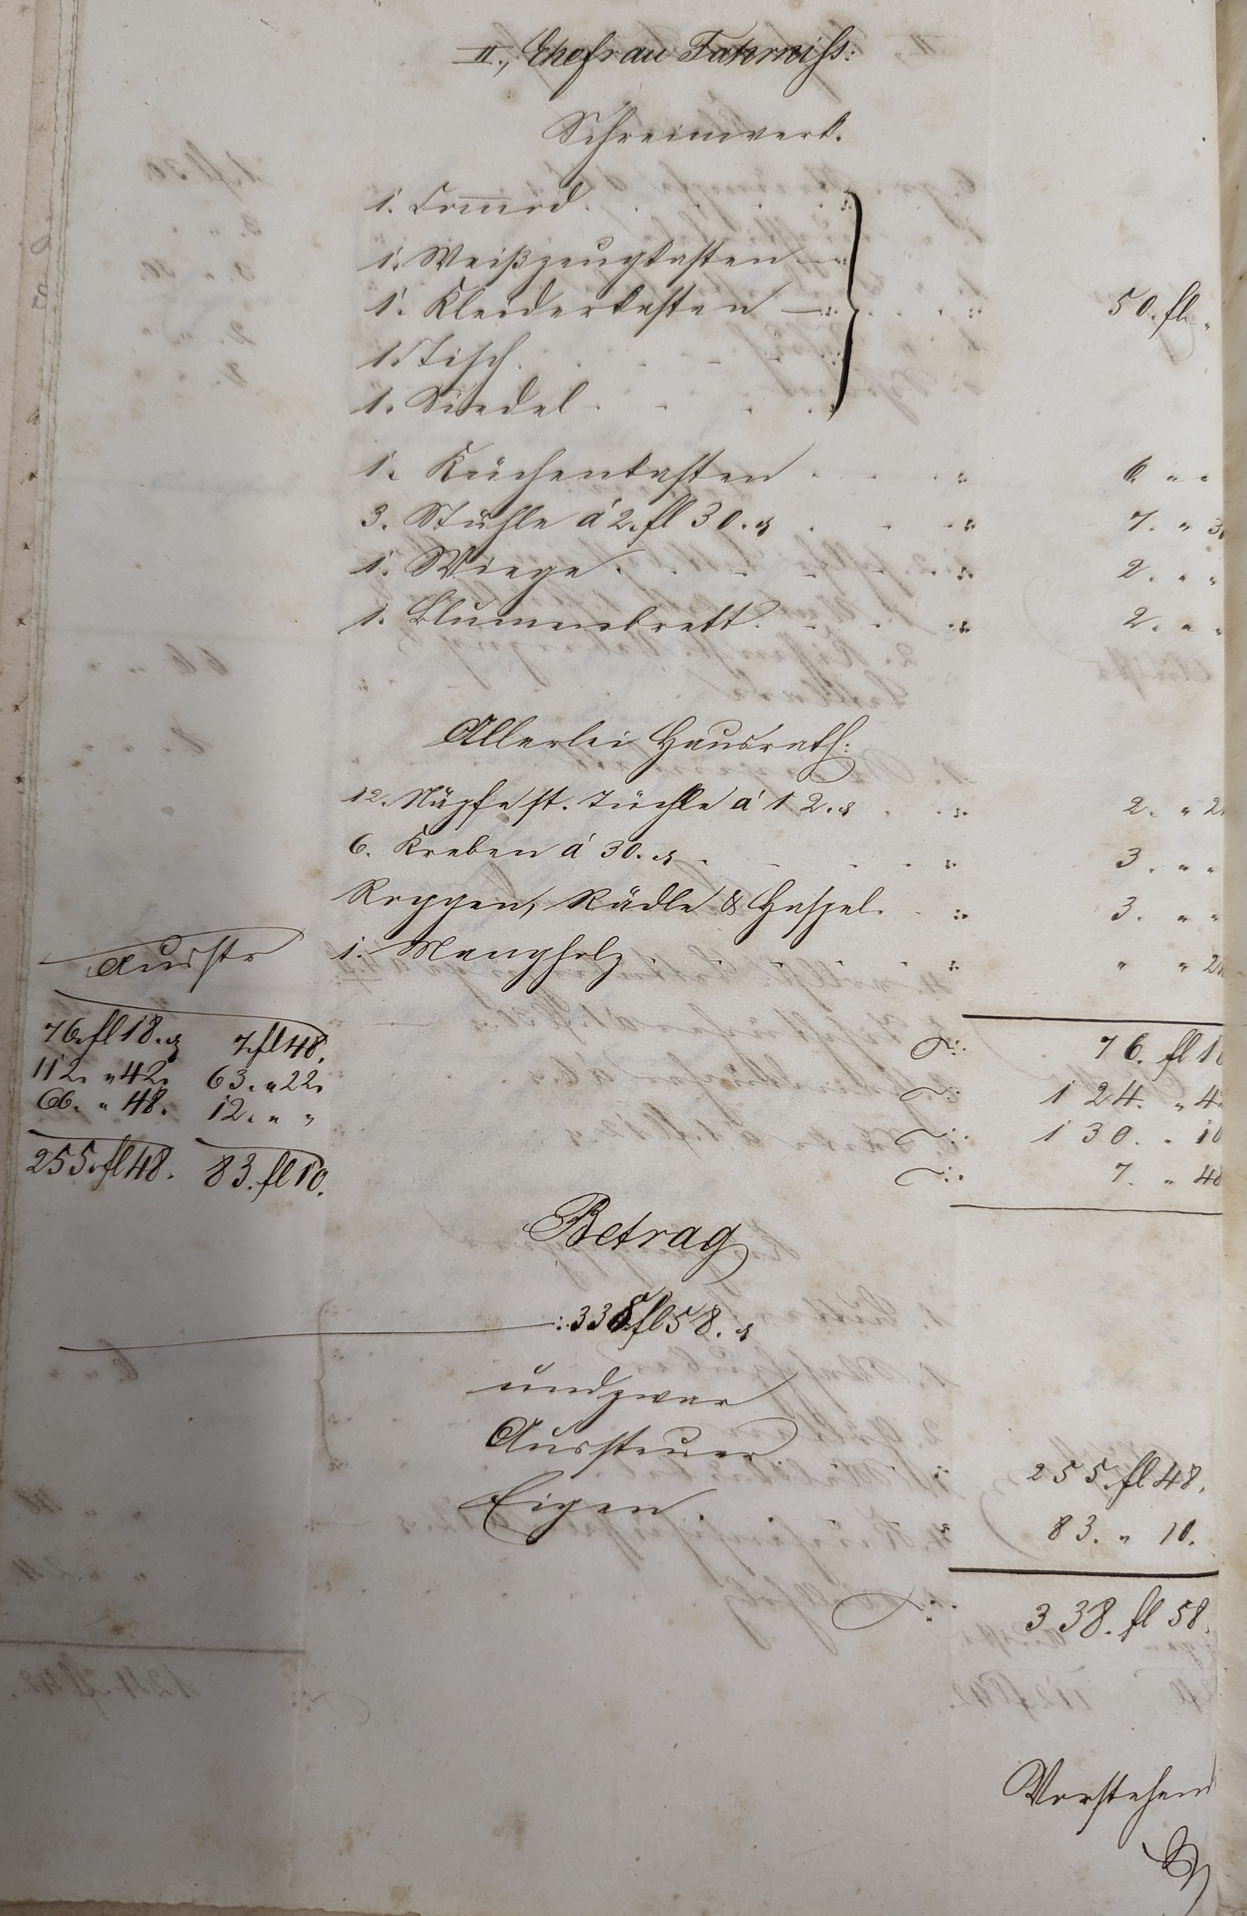 II., Ehefrau Fahrniß:
Schreinwerk.
1. Commod
1. Weißzeugkasten
1. Kleiderkasten
50. fl "
1. Tisch
1. Siedel
1. Küchenkasten 6 " "
3. Stühle á 2. fl 30. x 7. " 3
1. Wiege 2. " "
1. Blumenbrett 2. " "
Allerlei Hausrath:
12. st. Tüchle á 12. x 2. " 2
6. Kreben á 30. x 3. " "
Roggen, Rädle & Haspel 3. " "
1. Mangholz " " 2
Ausstr
76. fl 18. x 7. fl 48.
112. " 42. 63. " 22.
66. " 48. 12. " "
255. fl 48. 83. fl 10.
76. fl 1
124. " 4
130. " 10
7. " 48
Betrag
338 fl 58. x
und zwar
Aussteuer 255. fl 48.
Eigen. 83. " 10.
338. fl 58.
Vorstehend